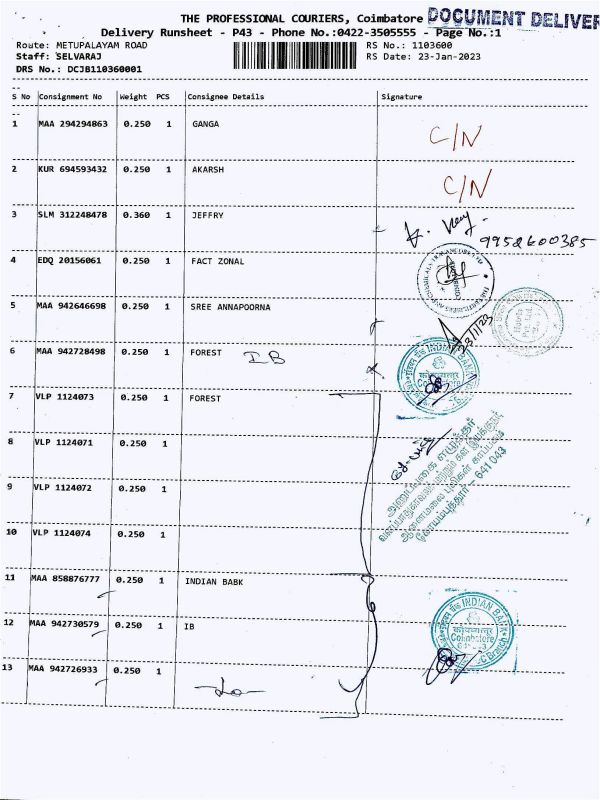 THE PROFESSIONAL COURIERS, Coimbatore DOCUMENT DELIVER
Delivery Runsheet - P43 - Phone No.:0422-3505555 - Page No.:1
Route: METUPALAYAM ROAD RS No.: 1103600
Staff: SELVARAJ RS Date: 23-Jan-2023
DRS No.: DCJB110360001
S No Consignment No Weight PCS Consignee Details Signature
1 MAA 294294863 0.250 1 GANGA C/N
2 KUR 694593432 0.250 1 AKARSH C/N
3 SLM 312248478 0.360 1 JEFFRY
9952600385
4 EDQ 20156061 0.250 1 FACT ZONAL
5 MAA 942646698 0.250 1 SREE ANNAPOORNA
23/1/23
6 MAA 942728498 0.250 1 FOREST IB
INDIAN BANK
कोयम्बत्तूर
Coimbatore
7 VLP 1124073 0.250 1 FOREST
8 VLP 1124071 0.250 1
ஆனைமலை புலிகள் காப்பகம்
கோயம்புத்தூர் - 641 043
9 VLP 1124072 0.250 1
10 VLP 1124074 0.250 1
11 MAA 858876777 0.250 1 INDIAN BABK
12 MAA 942730579 0.250 1 IB
INDIAN BANK
कोयम्बत्तूर
Coimbatore
Branch
13 MAA 942726933 0.250 1